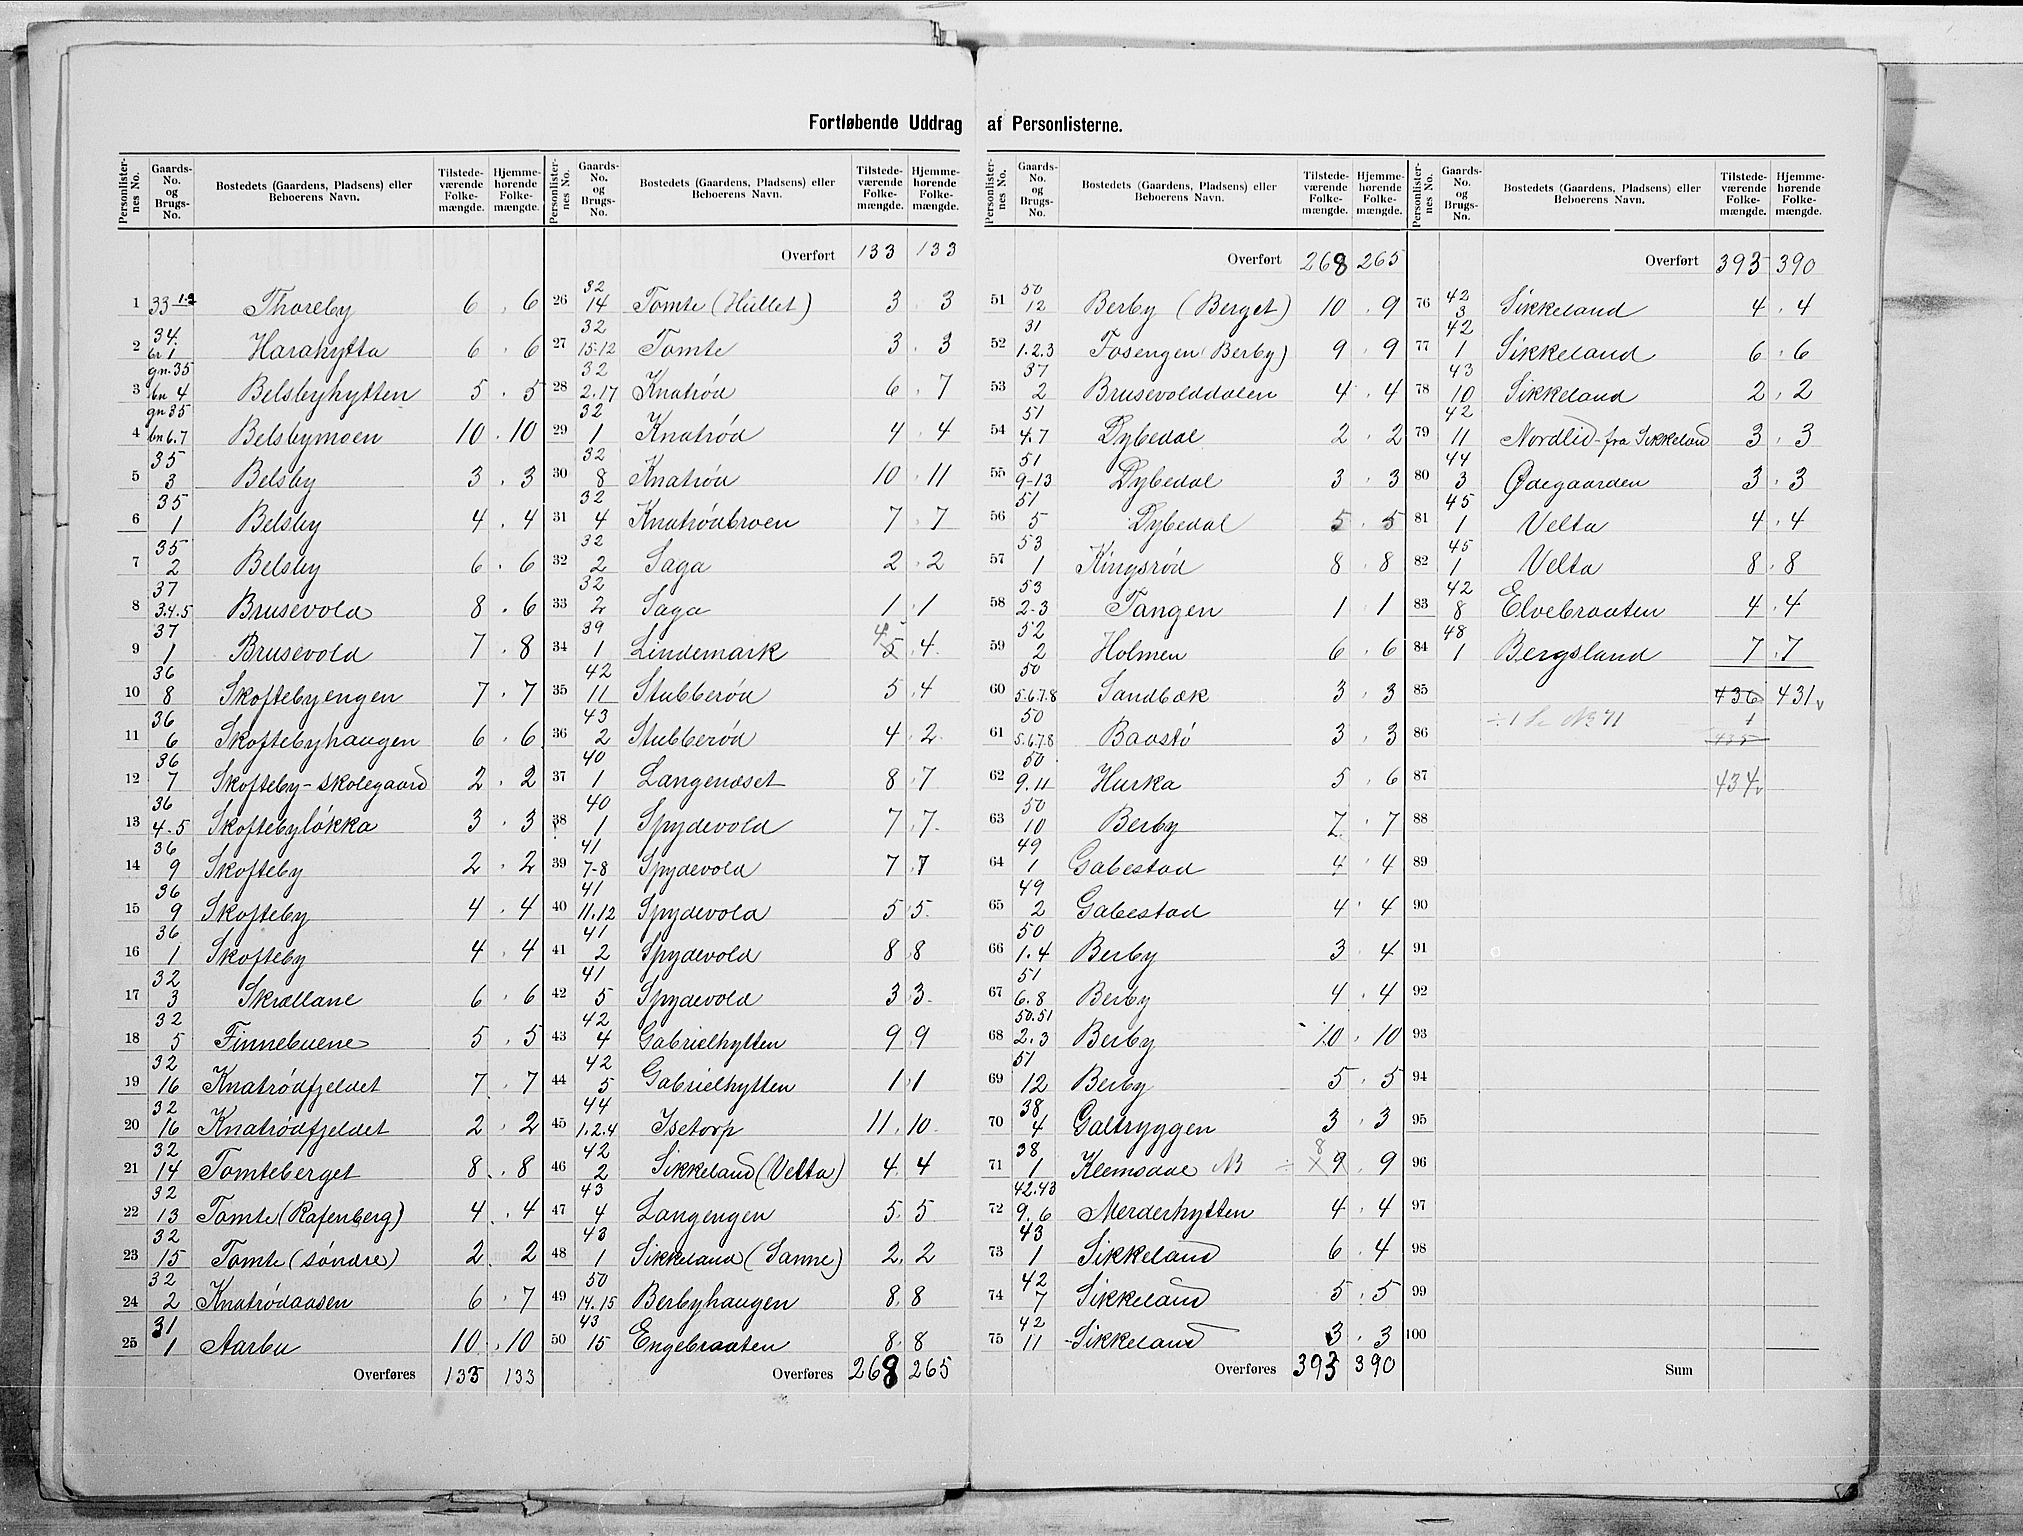 Fortløbende Uddrag af Personlisterne.
Personlister-nes No. Gaards-No. og Brugs-No. Bostedets (Gaardens, Pladsens) eller Beboerens Navn. Tilstede-værende Folke-mængde. Hjemme-hørende Folke-mængde.
1 33 1-2 Thoreby 6 . 6
2 34. br 1 Harahytta 6 . 6
3 gn. 35 bn 4 Belsbyhytten 5 . 5
4 gn 35 bn 6.7 Belsbymoen 10 . 10
5 35 3 Belsby 3 . 3
6 35 1 Belsby 4 . 4
7 35 2 Belsby 6 . 6
8 37 3.4.5 Brusevold 8 . 6
9 37 1 Brusevold 7 . 8
10 36 8 Skoftebyengen 7 . 7
11 36 6 Skoftebyhaugen 6 . 6
12 36 7 Skofteby-skolegaard 2 . 2
13 36 4-5 Skoftebyløkka 3 . 3
14 36 9 Skofteby 2 . 2
15 36 9 Skofteby 4 . 4
16 36 1 Skofteby 4 . 4
17 32 3 Skrællane 6 . 6
18 32 5 Finnebuene 5 . 5
19 32 16 Knatrødfjeldet 7 . 7
20 32 16 Knatrødfjeldet 2 . 2
21 32 14 Tomteberget 8 . 8
22 32 13 Tomte (Rafenberg) 4 . 4
23 32 15 Tomte (søndre) 2 . 2
24 32 2 Knatrødaasen 6 . 7
25 31 1 Aarbu 10 . 10
Overføres 133 133
Personlister-nes No. Gaards-No. og Brugs-No. Bostedets (Gaardens, Pladsens) eller Beboerens Navn. Tilstede-værende Folke-mængde. Hjemme-hørende Folke-mængde.
Overført 133 133
26 32 14 Tomte (Hullet) 3 . 3
27 32 15.12 Tomte 3 . 3
28 32 2.17 Knatrød 6 . 7
29 32 1 Knatrød 4 . 4
30 32 8 Knatrød 10 . 11
31 32 4 Knatrødbroen 7 . 7
32 32 2 Saga 2 . 2
33 32 2 Saga 1 . 1
34 39 1 Lindemark 4 5 . 4
35 42 11 Stubberød 5 . 4
36 43 2 Stubberød 4 . 2
37 40 1 Langenæset 8 . 7
38 40 1 Spydevold 7 . 7
39 41 7-8 Spydevold 7 . 7
40 41 11.12 Spydevold 5 . 5
41 41 2 Spydevold 8 . 8
42 41 5 Spydevold 3 . 3
43 42 4 Gabrielhytten 9 . 9
44 42 5 Gabrielhytten 1 . 1
45 44 1.2.4 Isetorp 11 . 10
46 42 2 Sikkeland (Velta) 4 . 4
47 43 4 Langengen 5 . 5
48 43 1 Sikkeland (Sanne) 2 . 2
49 50 14.15 Berbyhaugen 8 . 8
50 43 15 Engebraaten 8 . 8
Overføres 268 265
Personlister-nes No. Gaards-No. og Brugs-No. Bostedets (Gaardens, Pladsens) eller Beboerens Navn. Tilstede-værende Folke-mængde. Hjemme-hørende Folke-mængde.
Overført 268 265
51 50 12 Berby (Berget) 10 . 9
52 31 1.2.3 Fosengen (Berby) 9 . 9
53 37 2 Brusevolddalen 4 . 4
54 51 4.7 Dybedal 2 . 2
55 51 9-13 Dybedal 3 . 3
56 51 5 Dybedal 5 . 5
57 53 1 Kingsrød 8 . 8
58 53 2-3 Tangen 1 . 1
59 52 2 Holmen 6 . 6
60 50 5.6.7.8 Sandbæk 3 . 3
61 50 5.6.7.8 Baastø 3 . 3
62 50 9.11 Hurka 5 . 6
63 50 10 Berby 7 . 7
64 49 1 Gabestad 4 . 4
65 49 2 Gabestad 4 . 4
66 50 1.4 Berby 3 . 4
67 51 6.8 Berby 4 . 4
68 50.51 2.3 Berby 10 . 10
69 51 12 Berby 5 . 5
70 38 4 Galtryggen 3 . 3
71 38 1 Klemsdal NB ÷ 8 9 . 9
72 42.43 9.6 Merderhytten 4 . 4
73 43 1 Sikkeland 6 . 4
74 42 7 Sikkeland 5 . 5
75 42 11 Sikkeland 3 . 3
Overføres 393 390
Personlister-nes No. Gaards-No. og Brugs-No. Bostedets (Gaardens, Pladsens) eller Beboerens Navn. Tilstede-værende Folke-mængde. Hjemme-hørende Folke-mængde.
Overført 393 390
76 42 3 Sikkeland 4 . 4
77 42 1 Sikkeland 6 . 6
78 43 10 Sikkeland 2 . 2
79 42 11 Nordlid - fra Sikkeland 3 . 3
80 44 3 Ødegaarden 3 . 3
81 45 1 Velta 4 . 4
82 45 1 Velta 8 . 8
83 42 8 Elvebraaten 4 . 4
84 48 1 Bergsland 7 . 7
85 436 431
÷ 1 Se No 71 1
86 435
87 434
88
89
90
91
92
93
94
95
96
97
98
99
100
Sum